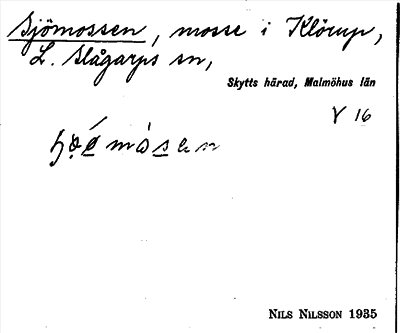 Sjömossen, mosse i Klörup,
L. Slågarps sn,
Skytts härad, Malmöhus län
V 16
NILS NILSSON 1935